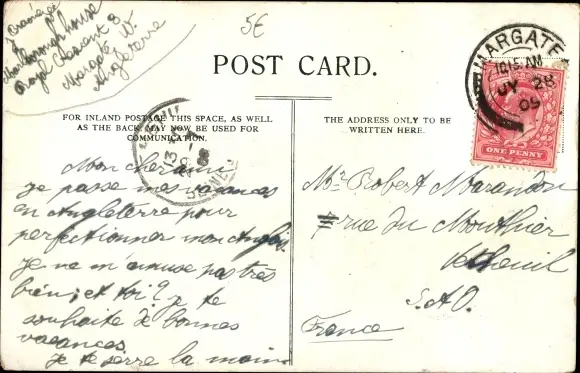 Marlborough house
Royal Crescent 8
Margate W.
Angleterre
5€
POST CARD.
MARGATE
10 15 AM
JY 28
05
ONE PENNY
FOR INLAND POSTAGE THIS SPACE, AS WELL
AS THE BACK, MAY NOW BE USED FOR
COMMUNICATION.
THE ADDRESS ONLY TO BE
WRITTEN HERE.
Mon cher ami
je passe mes vacances
en Angleterre pour
perfectionner mon Anglais.
Je ne m'amuse pas très
bien; et toi? je te
souhaite de bonnes
vacances.
Je te serre la main
Mr. Robert Marandon
7 rue du Mouthier
S. & O.
France